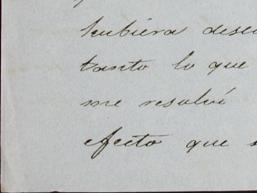 hubiera dese
tanto lo que
me resolví
efecto que